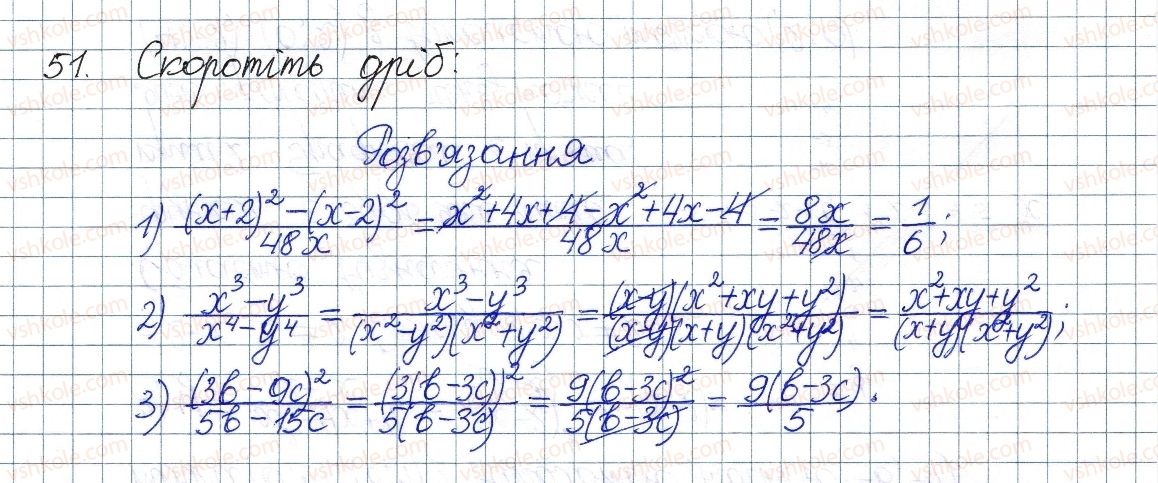 51. Скоротіть дріб:
Розв'язання
1) ((x+2)² – (x-2)²)/(48x) = (x²+4x+4-x²+4x-4)/(48x) = 8x/48x = 1/6;
2) (x³-y³)/(x⁴-y⁴) = (x³-y³)/((x²-y²)(x²+y²)) = ((x-y)(x²+xy+y²))/((x-y)(x+y)(x²+y²)) = (x²+xy+y²)/((x+y)(x²+y²));
3) (3b-9c)²/(5b-15c) = (3(b-3c))²/(5(b-3c)) = 9(b-3c)²/(5(b-3c)) = 9(b-3c)/5.